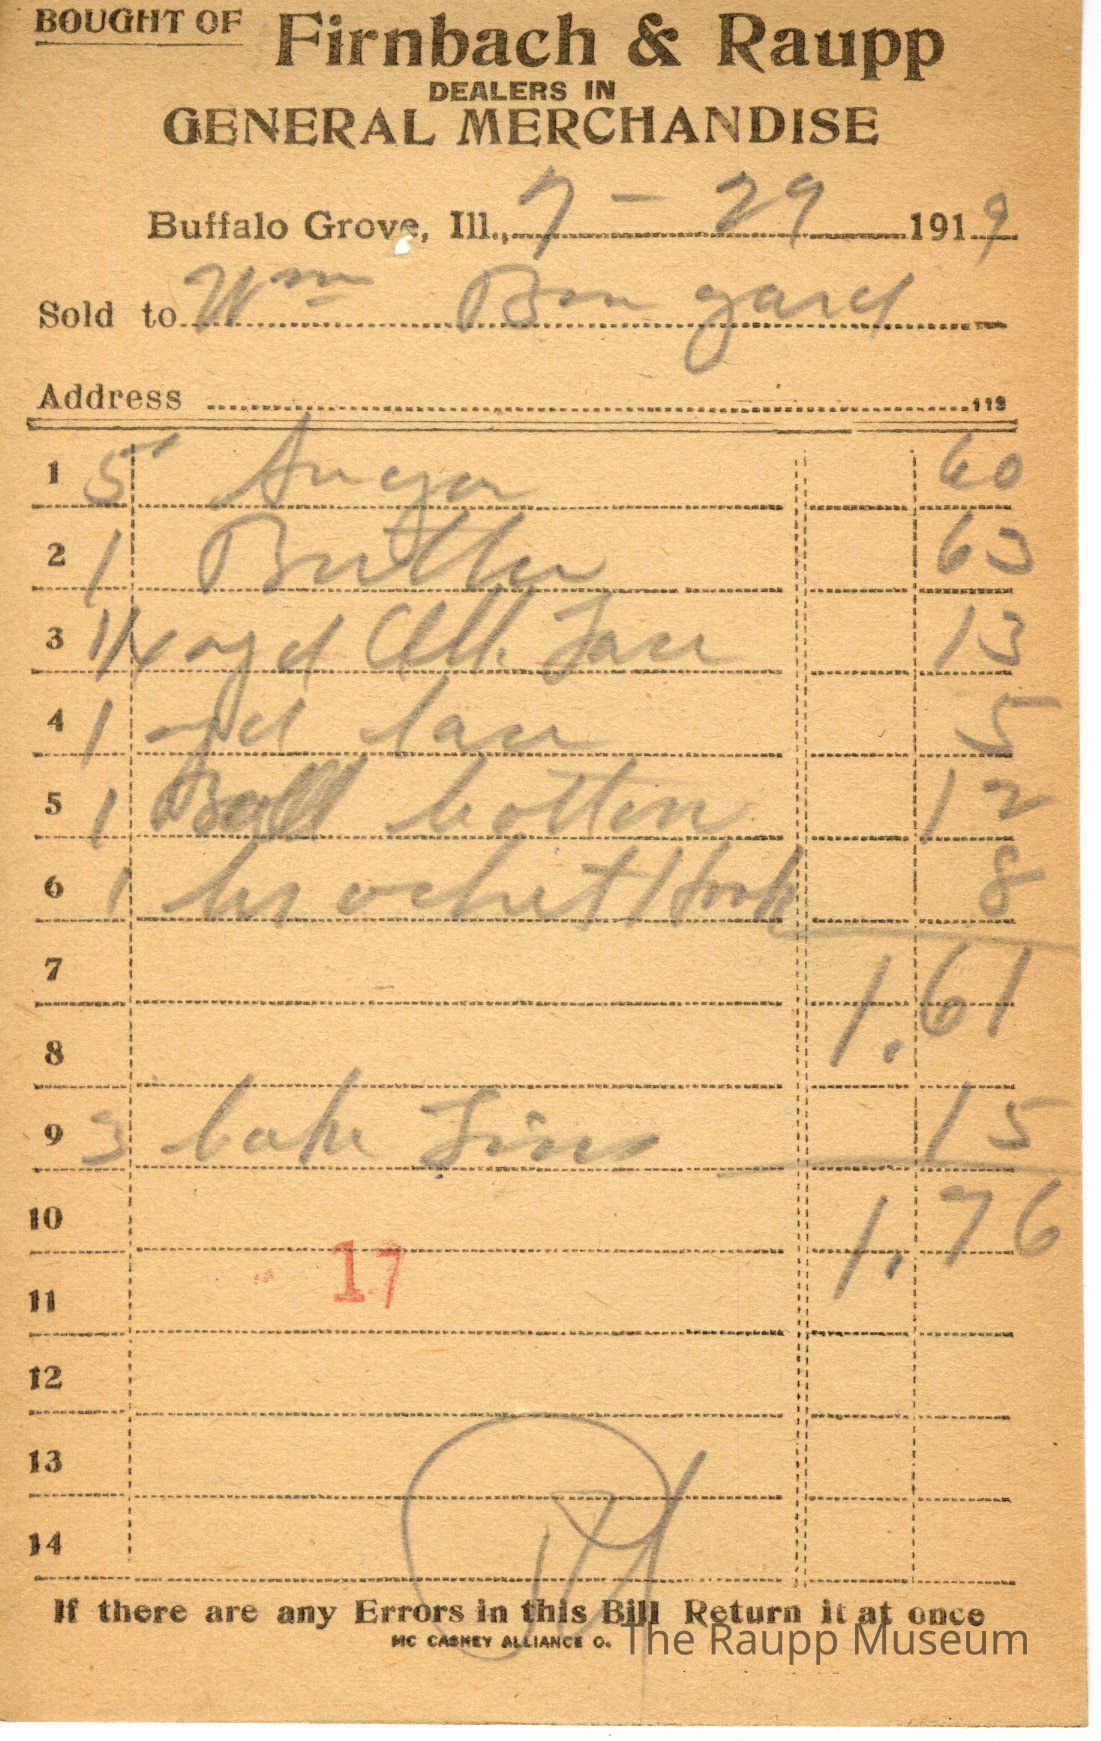 BOUGHT OF Firnbach & Raupp
DEALERS IN
GENERAL MERCHANDISE
Buffalo Grove, Ill., 7 - 29 1919
Sold to Wm Bongard
Address 113
1 5 Sugar 60
2 1 Butter 63
3 yd All. Lace 13
4 1 yd Lace 5
5 1 Ball Cotton 12
6 1 Crochet Hook 8
7 1.61
8
9 3 Cake Tins 15
10 1.76
17
11
12
13
14
If there are any Errors in this Bill Return it at once
MC CASKEY ALLIANCE O.
The Raupp Museum